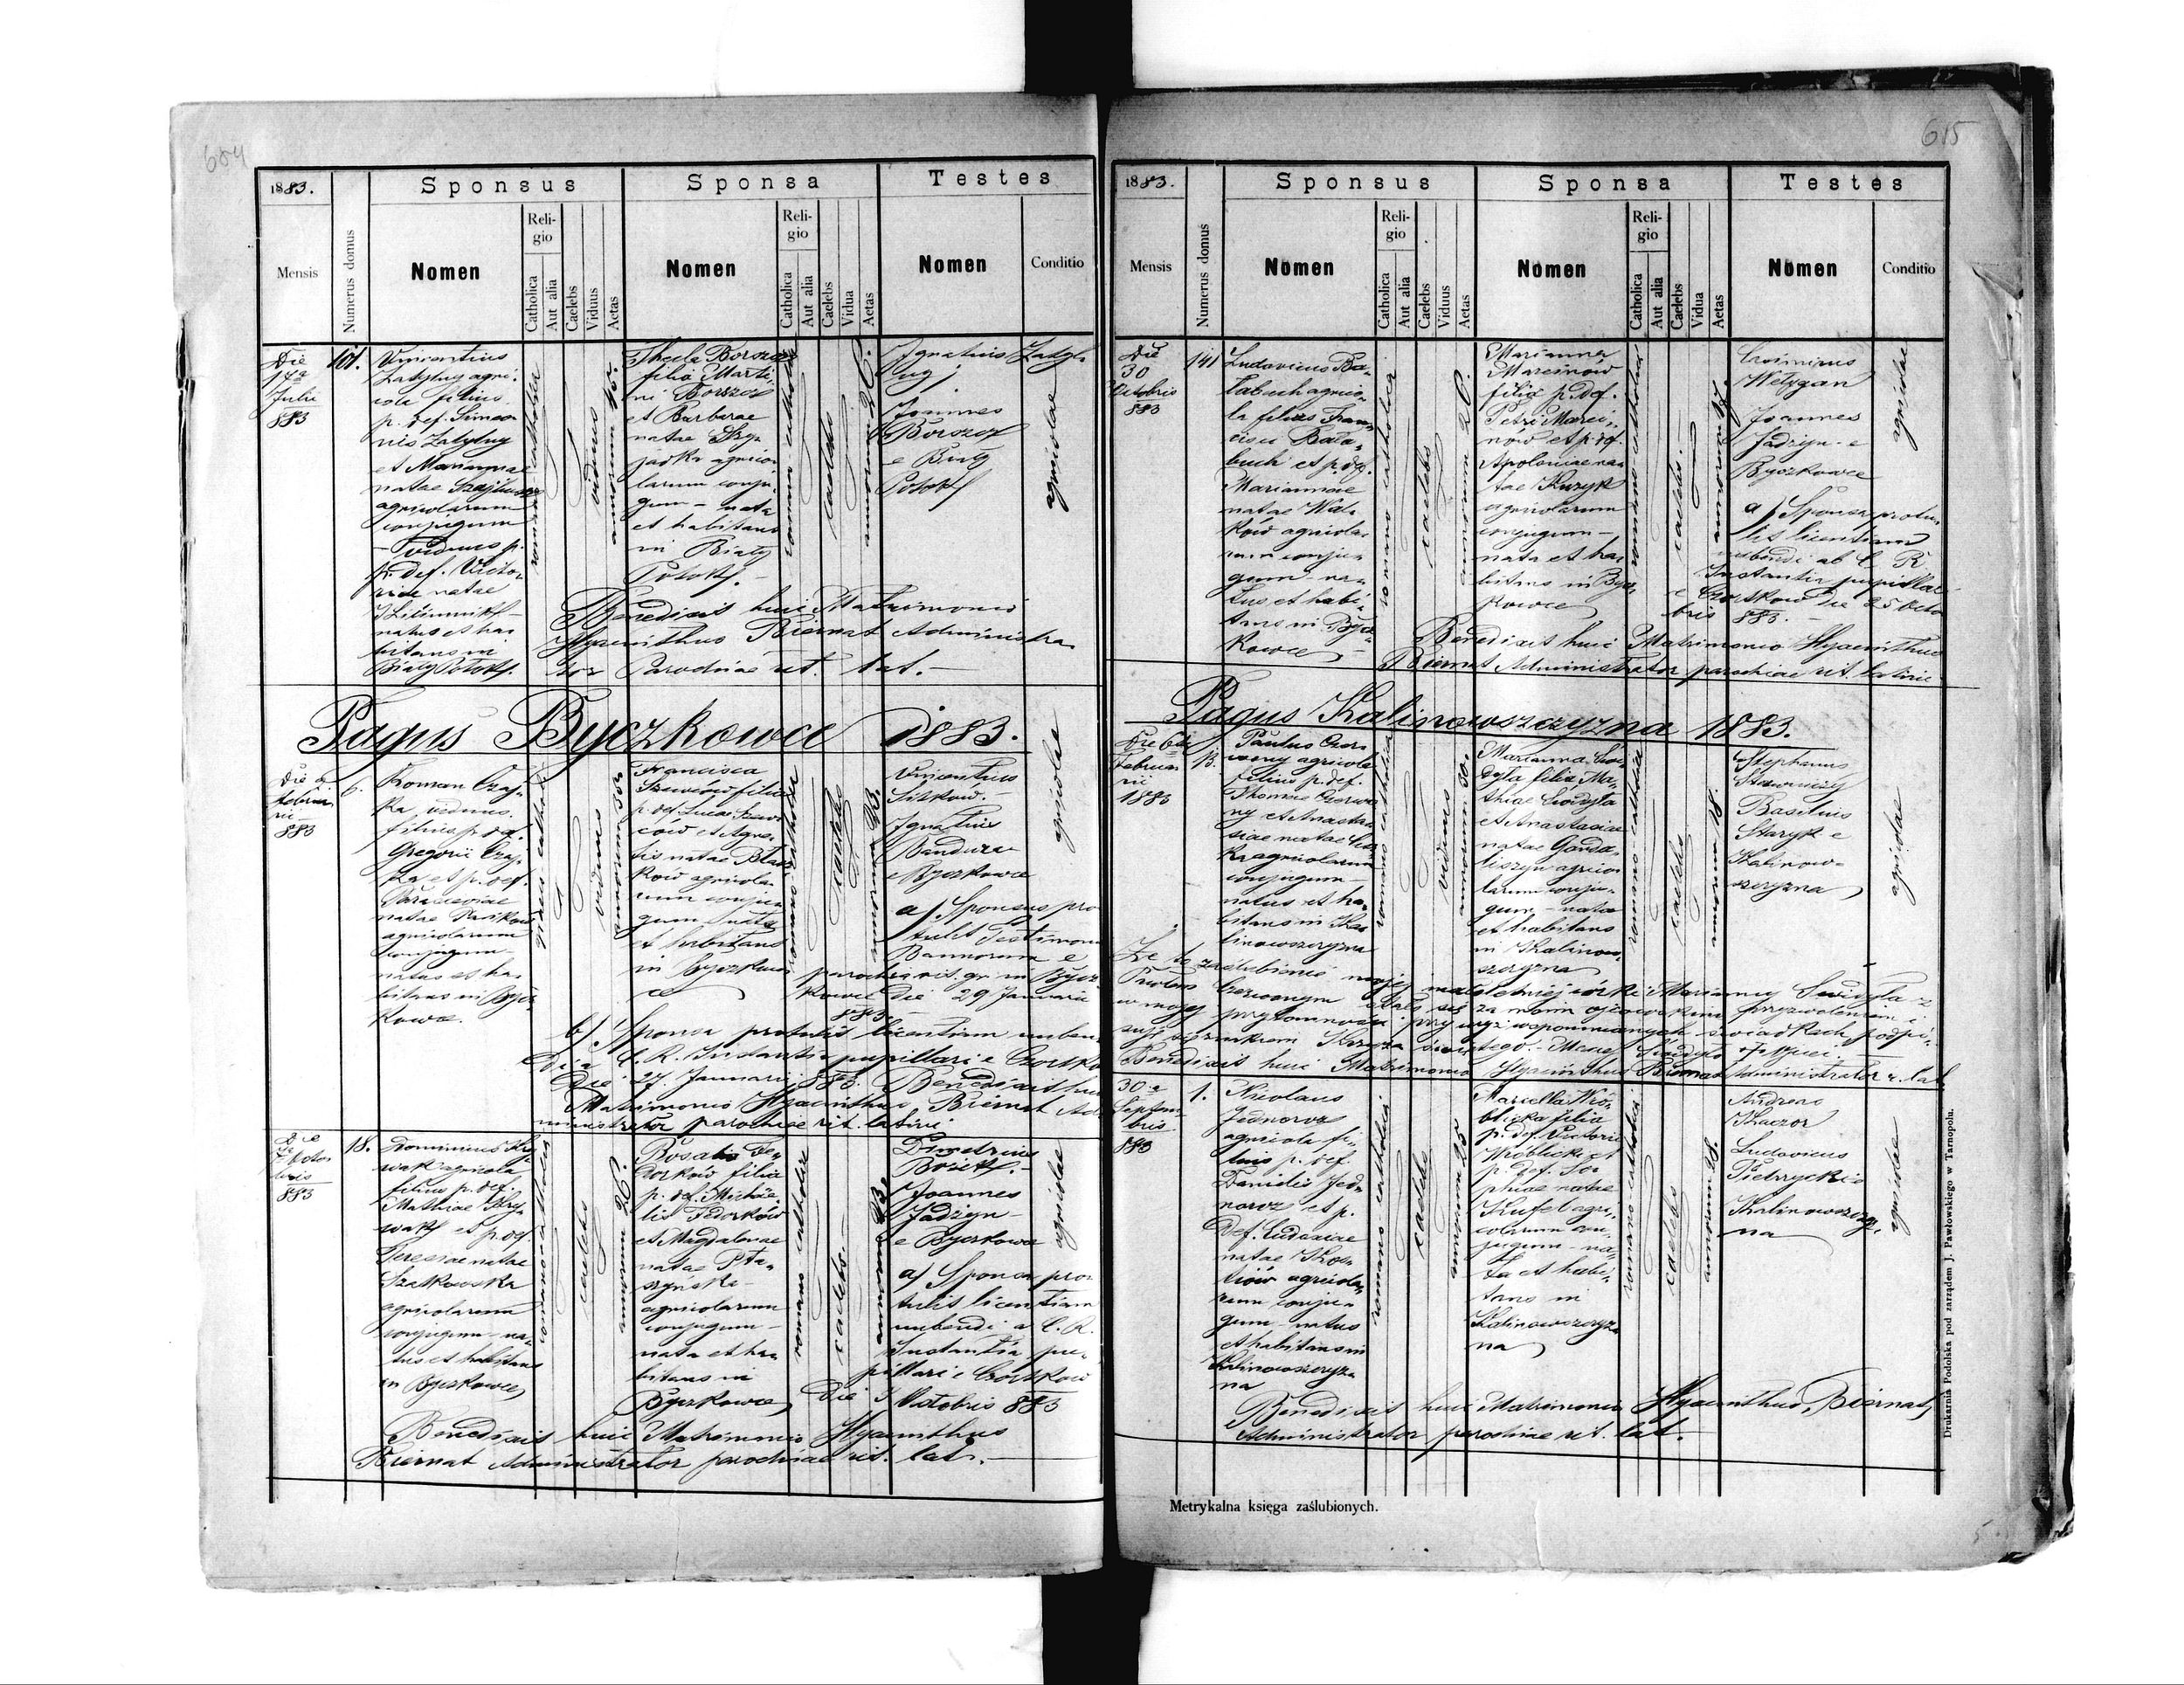 654
1883.
Sponsus
Sponsa
Testes
Mensis
Numerus domus
Nomen
Religio
Catholica
Aut alia
Caelebs
Viduus
Aetas
Nomen
Religio
Catholica
Aut alia
Caelebs
Vidua
Aetas
Nomen
Conditio
Die
17a
Julii
883
101.
Vincentius
agri-
cola filius
p. def. Simeo-
nis
et Mariannae
natae
agricolarum
conjugum
- viduus p.
p. def. Victo-
riae natae
natus et ha-
bitans in
Biały Potok.
romano catholica
viduus
annorum
Thecla Borszcz
filia Marti-
ni Borszcz
et Barbarae
natae
agrico-
larum conju-
gum - nata
et habitans
in Biały
Potok. -
romano catholica
caelebs
annorum
Ignatius
Joannes
Borszcz
e Biały
Potok
agricolae
Benedixit huic Matrimonio
Hyacinthus Biernat Administra-
tor Parochiae rit. lat. -
Pagus Byczkowce 1883.
Die
Februa-
rii
883
6.
Roman Czaj-
ka viduus
filius p. def.
Gregorii Czaj-
ka et p. def.
Parasceviae
natae
agricolarum
conjugum
natus et ha-
bitans in Bycz-
kowce.
graeci catholica
viduus
annorum
Francisca
Szewców filia
p. def. Lucae Szew-
ców et Agne-
tis natae
agricola-
rum conju-
gum nata
et habitans
in Byczkow-
ce
romano catholica
caelebs
annorum
Vincentius
Ignatius
Bandura
e Byczkowce
agricolae
a) Sponsus pro-
tulit Testimon.
Bannorum e
parochia rit. gr. in Bycz-
kowce die 29 Januarii
883. -
b) Sponsa protulit licentiam nuben-
di a C. R. Instantia pupillari e Czortków
die 27. Januarii 883. Benedixit huic
Matrimonio Hyacinthus Biernat Ad-
ministrator parochiae rit. latini
Die
Octo-
bris
883
18.
Dominicus
agricola
filius p. def.
Mathiae
et p. def.
Teresiae natae
Szatkowska
agricolarum
conjugum - na-
tus et habitans
in Byczkowce
romano catholica
caelebs
annorum 26.
Rosalia Fe-
dorków filia
p. def. Michae-
lis Fedorków
et Magdalenae
natae Pta-
szyńska -
agricolarum
conjugum -
nata et ha-
bitans in
Byczkowce
romano catholica
caelebs.
annorum
Joannes
Jadzyn -
e Byczkowce
agricolae
a) Sponsa pro-
tulit licentiam
nubendi a C. R.
Instantia pu-
pillari e Czortków
die Octobris 883
Benedixit huic Matrimonio Hyacinthus
Biernat Administrator parochiae rit. lat. -
615
1883.
Sponsus
Sponsa
Testes
Mensis
Numerus domus
Nomen
Religio
Catholica
Aut alia
Caelebs
Viduus
Aetas
Nomen
Religio
Catholica
Aut alia
Caelebs
Vidua
Aetas
Nomen
Conditio
Die
30
Octobris
883
141
Ludovicus Ba-
łabuch agrico-
la filius Fran-
cisci Bała-
buch et p. def.
Mariannae
natae Wal-
ków agricola-
rum conju-
gum - na-
tus et habi-
tans in Bycz-
kowce -
romano catholica
caelebs
annorum 26.
Marianna
Marcinow
filia p. def.
Petri Marci-
nów et p. def.
Apoloniae na-
tae Kuzyk
agricolarum
conjugum -
nata et ha-
bitans in Bycz-
kowce
romano catholica
caelebs.
annorum
Casimirus
Wełygan
Joannes
Jadzyn - e
Byczkowce
agricolae
a) Sponsa protu-
lit licentiam
nubendi ab C. R.
Instantia pupillari
e Czortków die 25 Octo-
bris 883. -
Benedixit huic Matrimonio Hyacinthus
Biernat Administrator parochiae rit. latini
Pagus Kalinowszczyzna 1883.
Die 6ta
Februa-
rii
1883
13.
Paulus Czer-
wony agricola
filius p. def.
Thomae Czerwo-
ny et Anasta-
siae natae
agricolarum
conjugum -
natus et ha-
bitans in Ka-
linowszczyzna
romano catholica
viduus
annorum 30.
Marianna Świ-
dyła filia Ma-
thiae Świdyła
et Anastasiae
natae
agrico-
larum conju-
gum, - nata
et habitans
in Kalinow-
szczyzna
romano catholica
caelebs
annorum 18.
Stephanus
Basilius
Staryk e
Kalinow-
szczyzna
agricolae
Że to zaślubienie mojej małoletniej córki Marianny Świdyła z
Pawłem Czerwonym stało się za moim ojcowskiem przyzwoleniem i
w mojej przytomności przy wyż wspomnianych świadkach podpi-
suję się znakiem Krzyża świętego. - Maciej Świdyła + ojciec.
Benedixit huic Matrimonio Hyacinthus Biernat Administrator r. lat.
30a
Septem-
bris
883
1.
Nicolaus
Jednoroz
agricola fi-
lius p. def.
Danielis Jed-
noroz et p.
def. Eudoxiae
natae Kos-
tiów agricola-
rum conju-
gum - natus
et habitans in
Kalinowszczyz-
na
romano catholica
caelebs
annorum 25
Marcella Wró-
blicka filia
p. def. Victoris
Wróblicki et
p. def. So-
phiae natae
Kufel agri-
colarum con-
jugum - na-
ta et habi-
tans in
Kalinowszczyz-
na
romano catholica
caelebs
annorum 28.
Andreas
Kaczor
Ludovicus
Pietrzycki e
Kalinowszczyz-
na
agricolae
Benedixit huic Matrimonio Hyacinthus Biernat
Administrator parochiae rit. lat. -
Metrykalna księga zaślubionych.
Drukarnia Podolska pod zarządem J. Pawłowskiego w Tarnopolu.